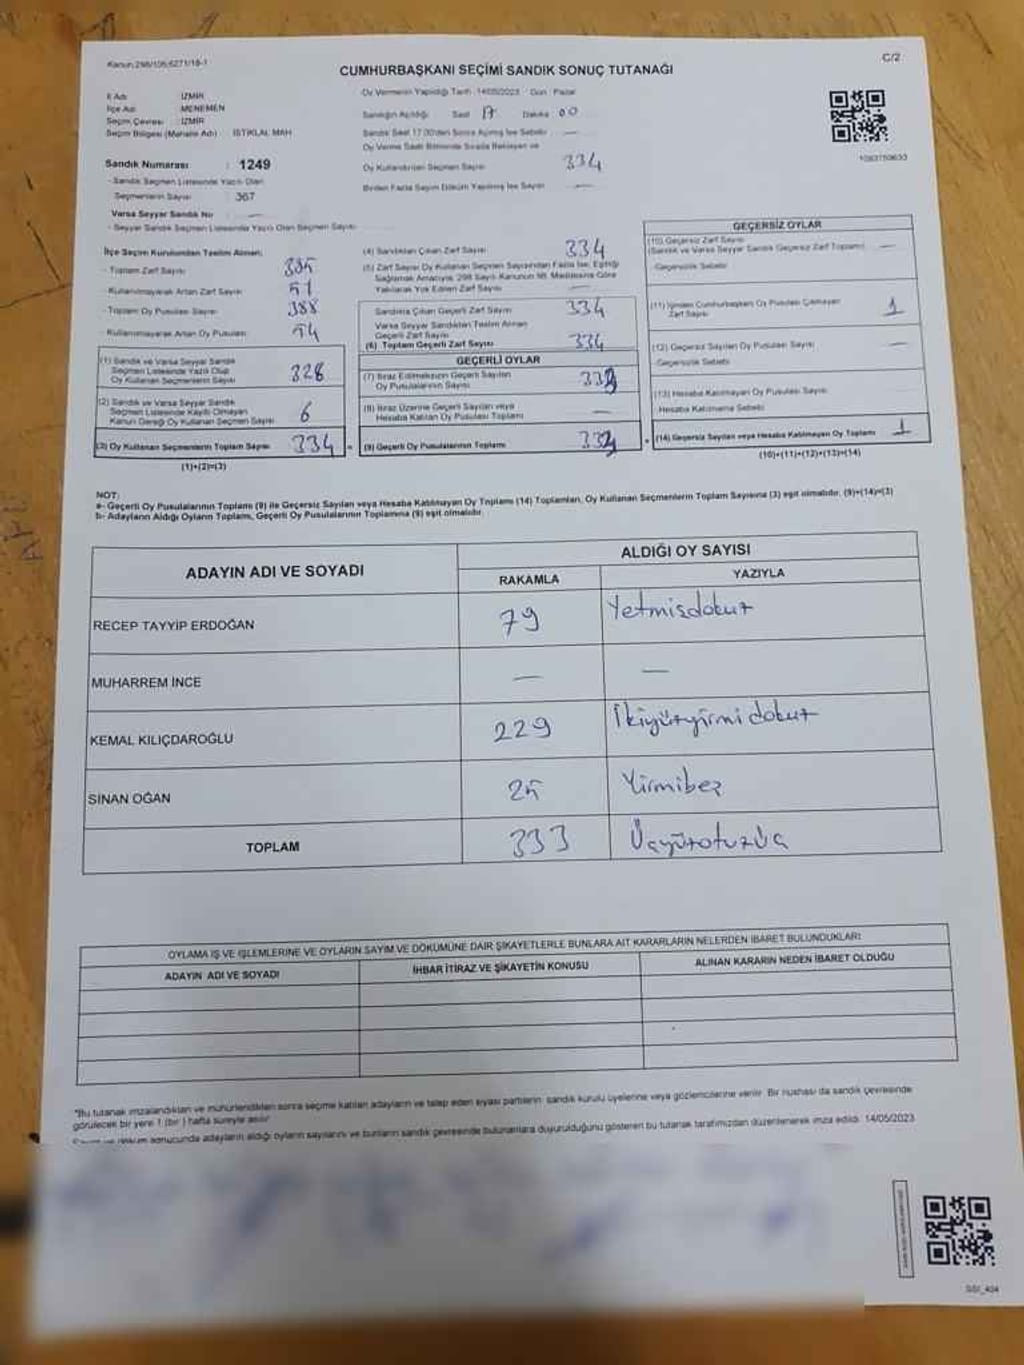 Kanun:298/105;6271/18-1
C/2
CUMHURBAŞKANI SEÇİMİ SANDIK SONUÇ TUTANAĞI
İl Adı : İZMİR
İlçe Adı : MENEMEN
Seçim Çevresi : İZMİR
Seçim Bölgesi (Mahalle Adı) : İSTİKLAL MAH
Sandık Numarası : 1249
- Sandık Seçmen Listesinde Yazılı Olan
Seçmenlerin Sayısı : 367
Varsa Seyyar Sandık No : —
- Seyyar Sandık Seçmen Listesinde Yazılı Olan Seçmen Sayısı :
Oy Vermenin Yapıldığı Tarih :14/05/2023 Gün : Pazar
Sandığın Açıldığı Saat 17 Dakika 00
Sandık Saat 17.00'den Sonra Açılmış İse Sebebi : —
Oy Verme Saati Bitiminde Sırada Bekleyen ve
Oy Kullandırılan Seçmen Sayısı : 334
Birden Fazla Sayım Döküm Yapılmış İse Sayısı : —
1093759633
İlçe Seçim Kurulundan Teslim Alınan;
- Toplam Zarf Sayısı : 385
- Kullanılmayarak Artan Zarf Sayısı : 51
- Toplam Oy Pusulası Sayısı : 388
- Kullanılmayarak Artan Oy Pusulası : 54
(1) Sandık ve Varsa Seyyar Sandık
Seçmen Listesinde Yazılı Olup
Oy Kullanan Seçmenlerin Sayısı 328
(2) Sandık ve Varsa Seyyar Sandık
Seçmen Listesinde Kayıtlı Olmayan
Kanun Gereği Oy Kullanan Seçmen Sayısı 6
(3) Oy Kullanan Seçmenlerin Toplam Sayısı 334 =
(1)+(2)=(3)
(4) Sandıktan Çıkan Zarf Sayısı : 334
(5) Zarf Sayısı Oy Kullanan Seçmen Sayısından Fazla İse, Eşitliği
Sağlamak Amacıyla, 298 Sayılı Kanunun 98. Maddesine Göre
Yakılarak Yok Edilen Zarf Sayısı : —
Sandıkta Çıkan Geçerli Zarf Sayısı : 334
Varsa Seyyar Sandıktan Teslim Alınan
Geçerli Zarf Sayısı :
(6) Toplam Geçerli Zarf Sayısı : 334
GEÇERLİ OYLAR
(7) İtiraz Edilmeksizin Geçerli Sayılan
Oy Pusulalarının Sayısı : 333
(8) İtiraz Üzerine Geçerli Sayılan veya
Hesaba Katılan Oy Pusulası Toplamı : —
(9) Geçerli Oy Pusulalarının Toplamı : 333 +
GEÇERSİZ OYLAR
(10) Geçersiz Zarf Sayısı
(Sandık ve Varsa Seyyar Sandık Geçersiz Zarf Toplamı) : —
Geçersizlik Sebebi :
(11) İçinden Cumhurbaşkanı Oy Pusulası Çıkmayan
Zarf Sayısı : 1
(12) Geçersiz Sayılan Oy Pusulası Sayısı : —
Geçersizlik Sebebi :
(13) Hesaba Katılmayan Oy Pusulası Sayısı :
Hesaba Katılmama Sebebi :
(14) Geçersiz Sayılan veya Hesaba Katılmayan Oy Toplamı : 1
(10)+(11)+(12)+(13)=(14)
NOT:
a- Geçerli Oy Pusulalarının Toplamı (9) ile Geçersiz Sayılan veya Hesaba Katılmayan Oy Toplamı (14) Toplamları, Oy Kullanan Seçmenlerin Toplam Sayısına (3) eşit olmalıdır. (9)+(14)=(3)
b- Adayların Aldığı Oyların Toplamı, Geçerli Oy Pusulalarının Toplamına (9) eşit olmalıdır.
ADAYIN ADI VE SOYADI
ALDIĞI OY SAYISI
RAKAMLA YAZIYLA
RECEP TAYYİP ERDOĞAN 79 Yetmişdokuz
MUHARREM İNCE — —
KEMAL KILIÇDAROĞLU 229 İkiyüzyirmidokuz
SİNAN OĞAN 25 Yirmibeş
TOPLAM 333 Üçyüzotuzüç
OYLAMA İŞ VE İŞLEMLERİNE VE OYLARIN SAYIM VE DÖKÜMÜNE DAİR ŞİKAYETLERLE BUNLARA AİT KARARLARIN NELERDEN İBARET BULUNDUKLARI
ADAYIN ADI VE SOYADI İHBAR İTİRAZ VE ŞİKAYETİN KONUSU ALINAN KARARIN NEDEN İBARET OLDUĞU
"Bu tutanak imzalandıktan ve mühürlendikten sonra seçime katılan adayların ve talep eden siyasi partilerin sandık kurulu üyelerine veya gözlemcilerine verilir. Bir nüshası da sandık çevresinde
görülecek bir yere 1 (bir ) hafta süreyle asılır"
Sayım ve döküm sonucunda adayların aldığı oyların sayılarını ve bunların sandık çevresinde bulunanlara duyurulduğunu gösteren bu tutanak tarafımızdan düzenlenerek imza edildi. 14/05/2023
SSİ_404